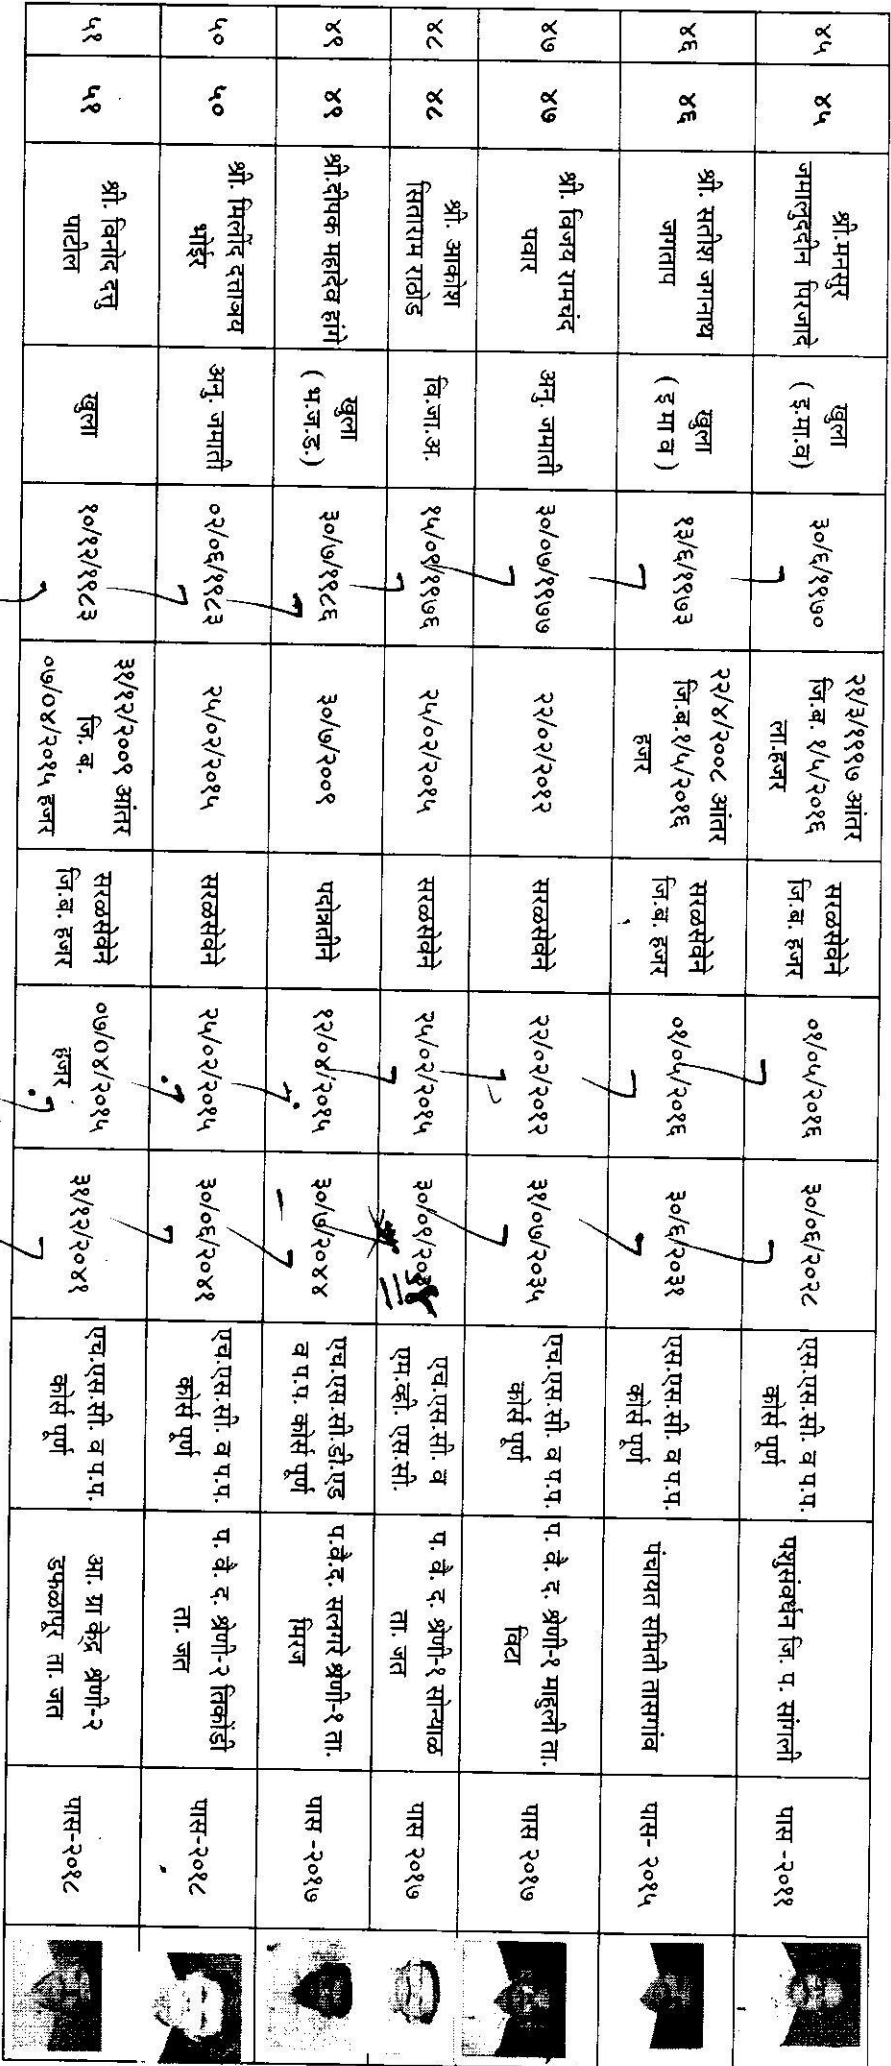 ४५ ४५ श्री.मनसुर जमालुद्दीन पिरजादे खुला (इ.मा.व) ३०/६/१९७० २१/३/१९९७ आंतर जि.ब. १/५/२०१६ ला.हजर सरळसेवेने जि.ब. हजर ०१/०५/२०१६ ३०/०६/२०२८ एस.एस.सी. व प.प. कोर्स पूर्ण पशुसंवर्धन जि. प. सांगली पास -२०११
४६ ४६ श्री. सतीश जगनाथ जगताप खुला (इ मा व) १३/६/१९७३ २२/४/२००८ आंतर जि.ब.१/५/२०१६ हजर सरळसेवेने जि.ब. हजर ०१/०५/२०१६ ३०/६/२०३१ एस.एस.सी. व प.प. कोर्स पूर्ण पंचायत समिती तासगांव पास- २०१५
४७ ४७ श्री. विजय रामचंद्र पवार अनु. जमाती ३०/०७/१९७७ २२/०२/२०१२ सरळसेवेने २२/०२/२०१२ ३१/०७/२०३५ एच.एस.सी व प.प. कोर्स पूर्ण प. वै. द. श्रेणी-१ माहुली ता. विटा पास २०१७
४८ ४८ श्री. आकोश सिताराम राठोड वि.जा.अ. १५/०९/१९७६ २५/०२/२०१५ सरळसेवेने २५/०२/२०१५ ३०/०९/२०३४ एच.एस.सी. व एम.व्ही. एस.सी. प. वै. द. श्रेणी-१ सोन्याळ ता. जत पास २०१७
४९ ४९ श्री.दीपक महादेव हांगे खुला (भ.ज.ड.) ३०/७/१९८६ ३०/७/२००९ पदोन्नतीने १२/०४/२०१५ ३०/७/२०४४ एच.एस.सी.डी.एड व प.प. कोर्स पूर्ण प.वै.द. सलगरे श्रेणी-१ ता. मिरज पास -२०१७
५० ५० श्री. मिलींद दत्तात्रय भोईर अनु. जमाती ०२/०६/१९८३ २५/०२/२०१५ सरळसेवेने २५/०२/२०१५ ३०/०६/२०४१ एच.एस.सी. व प.प. कोर्स पूर्ण प. वै. द. श्रेणी-२ तिकोंडी ता. जत पास-२०१८
५१ ५१ श्री. विनोद दत्तु पाटील खुला १०/१२/१९८३ ३१/१२/२००९ आंतर जि. ब. ०७/०४/२०१५ हजर सरळसेवेने जि.ब. हजर ०७/०४/२०१५ हजर ३१/१२/२०४१ एच.एस.सी. व प.प. कोर्स पूर्ण आ. प्रा केंद्र श्रेणी-२ डफळापूर ता. जत पास-२०१८